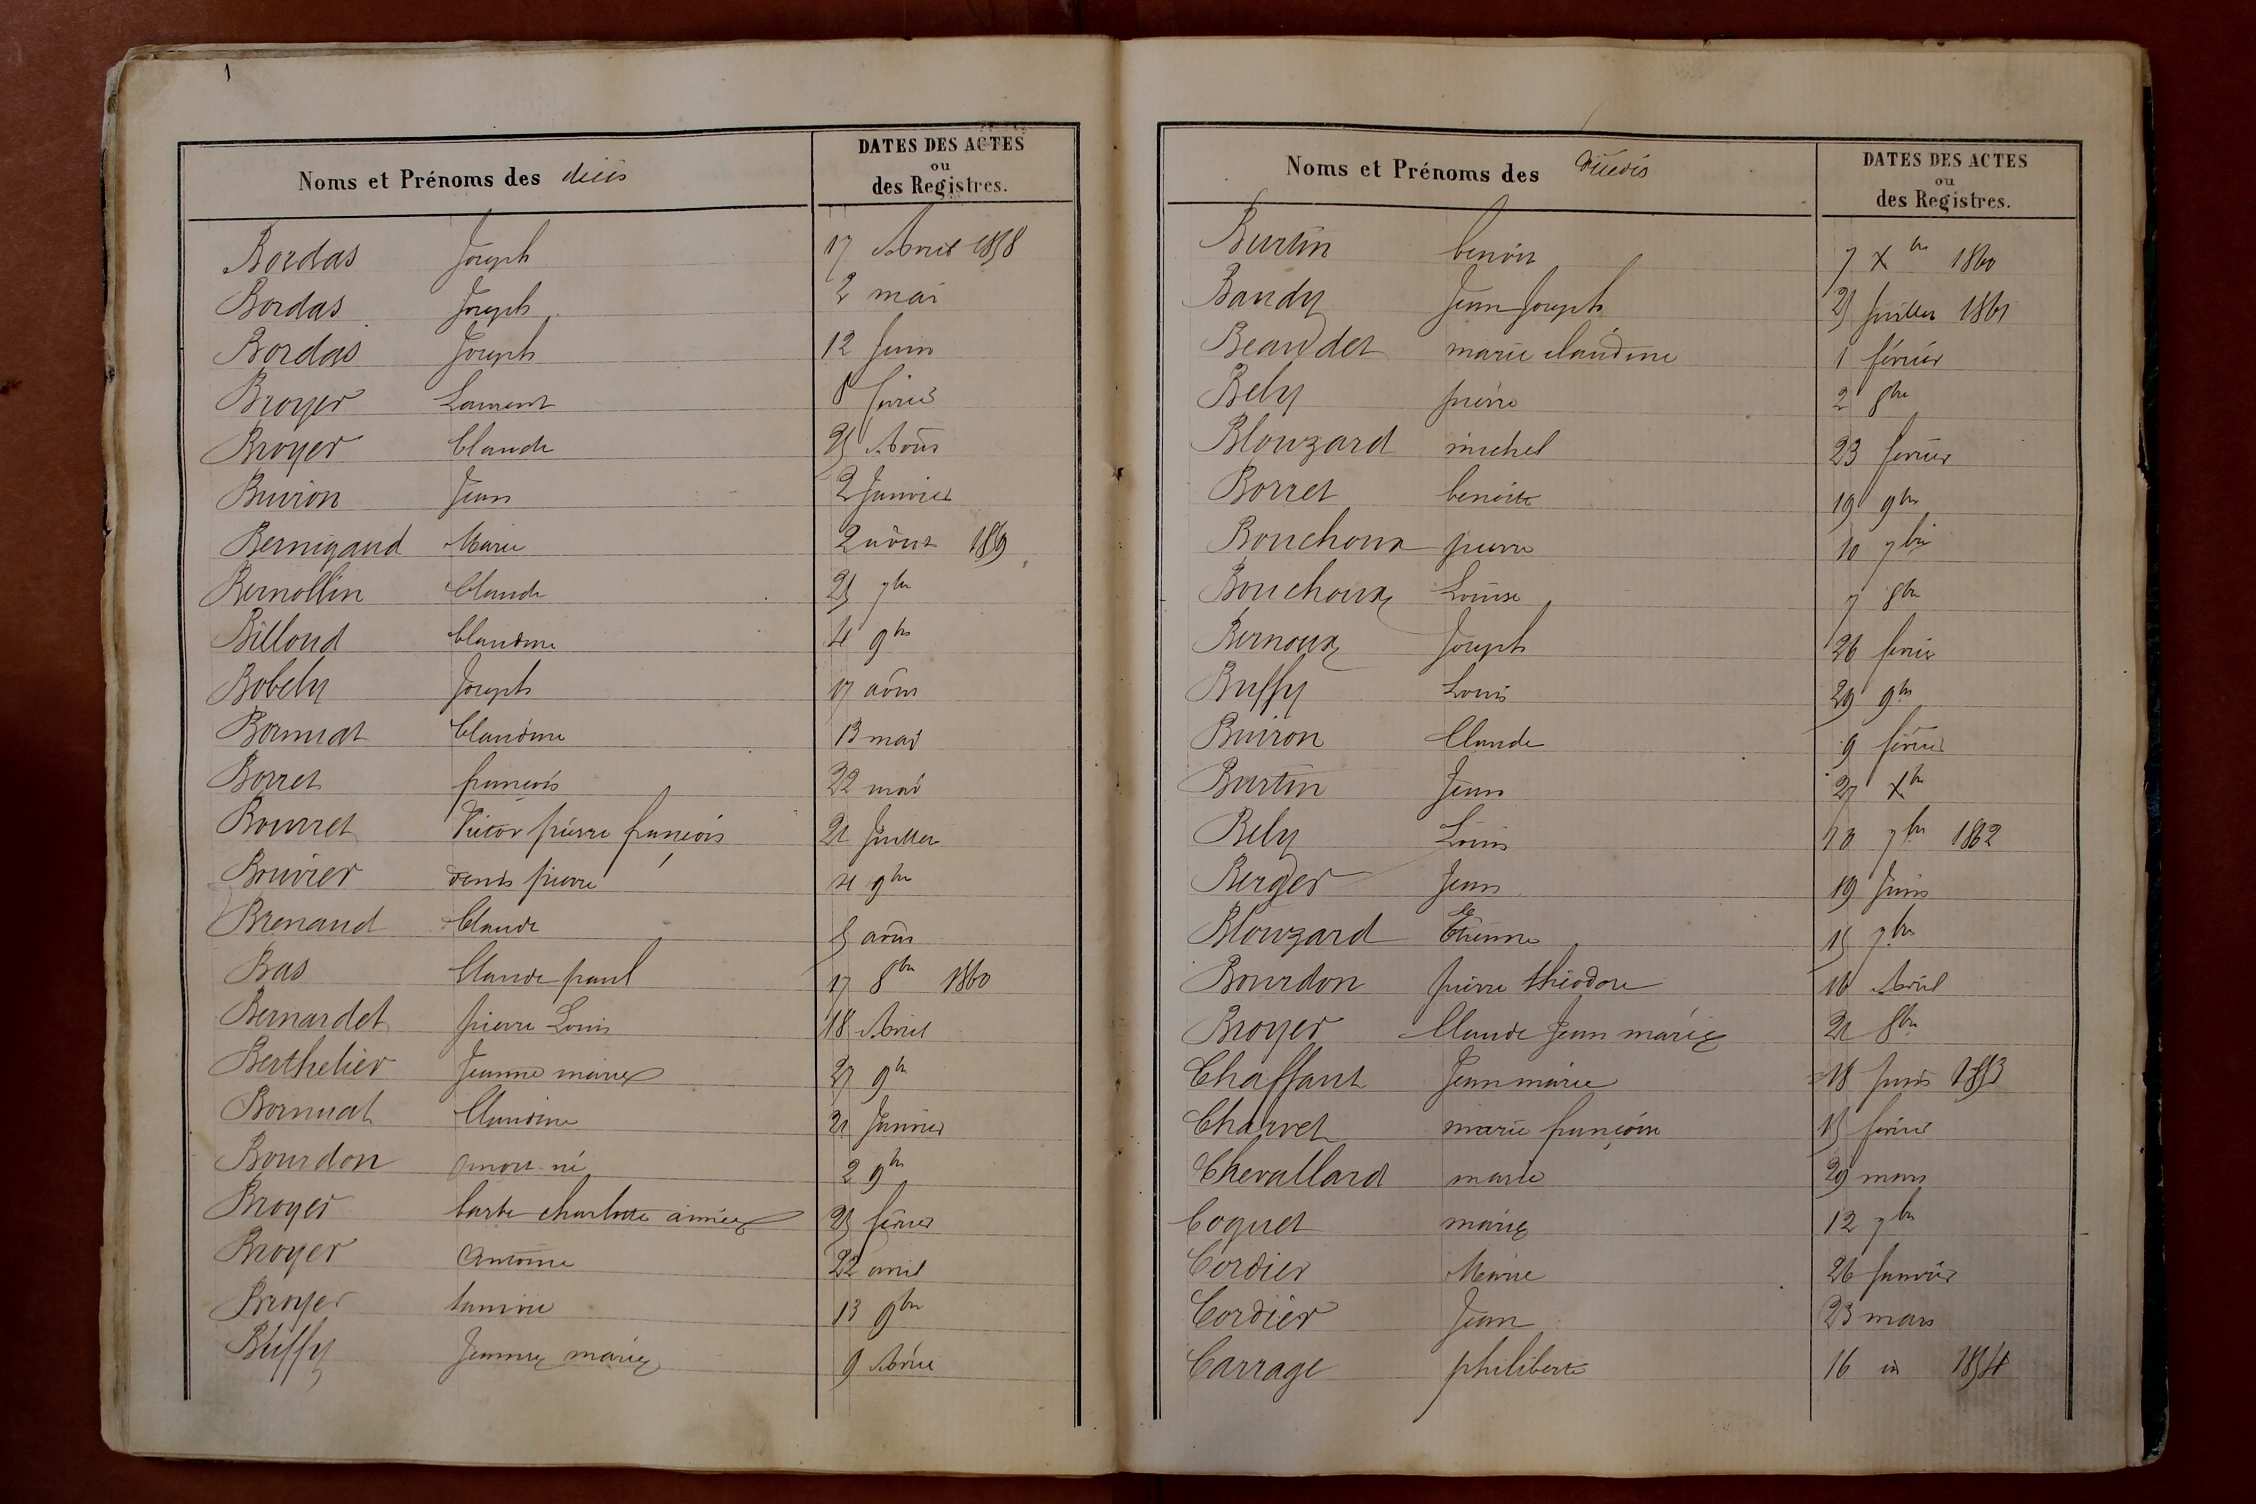 1
Noms et Prénoms des décès
DATES DES ACTES
ou
des Registres.
Bordas Joseph 17 Avril 1858
Bordas Joseph 2 mai
Bordas Joseph 12 Juin
Broyer Laurent 8 février
Broyer Claude 25 Août
Buiron Jean 2 Janvier
Bernigaud Marie 2 août 1859
Bernollin Claude 25 7bre
Billoud Claudine 4 9bre
Bobely Joseph 17 août
Bornuat Claudine 13 mai
Borret françois 22 mai
Bourret Victor pierre françois 21 Juillet
Bouvier denis pierre 4 9bre
Brenaud Claude 5 août
Bas Claude paul 17 8bre 1860
Bernardet pierre Louis 18 Avril
Berthelier Jeanne marie 27 9bre
Bornuat Claudine 21 Janvier
Bourdon mort né 2 9bre
Broyer barbe charlotte aimée 25 février
Broyer antoine 22 avril
Broyer 13 9bre
Buffy Jeanne marie 9 Avril
Noms et Prénoms des Décédés
DATES DES ACTES
ou
des Registres.
Burtin benoit 7 Xbre 1860
Baudy Jean Joseph 25 Juillet 1861
Beaudet marie claudine 1 février
Bely pierre 2 8bre
Blouzard michel 23 février
Borret benoite 19 9bre
Bouchoux pierre 10 7bre
Bouchoux Louise 7 8bre
Bernoux Joseph 26 février
Buffy Louis 29 9bre
Buiron Claude 9 février
Burtin Jean 27 Xbre
Bely Louis 10 7bre 1862
Berger Jean 19 Juin
Blouzard Etienne 15 7bre
Bourdon pierre théodore 16 Avril
Broyer Claude Jean marie 21 8bre
Chaffaut Jean marie 18 Juin 1853
Charvet marie françoise 15 février
Chevallard marie 29 mars
Coquet marie 12 7bre
Cordier Marie 26 Janvier
Cordier Jean 23 mars
Carrage philiberte 16 id 1854